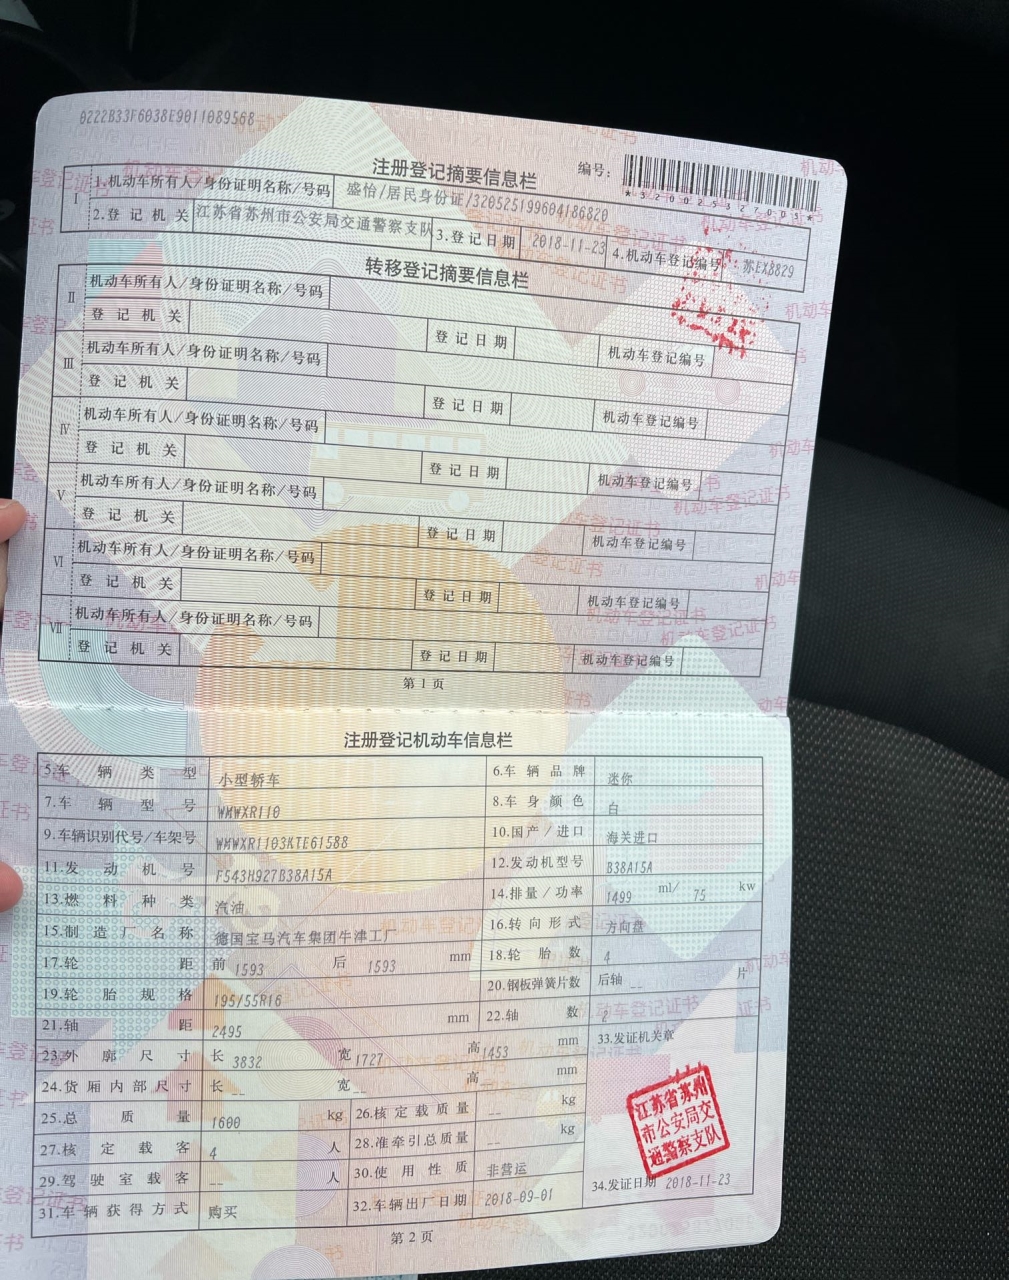 0222B33F6038E9011089568
注册登记摘要信息栏 编号:
*320025327005*
I 1.机动车所有人/身份证明名称/号码 盛怡/居民身份证/320525199604186820
2.登记机关 江苏省苏州市公安局交通警察支队 3.登记日期 2018-11-23 4.机动车登记编号 苏EX8829
转移登记摘要信息栏
II 机动车所有人/身份证明名称/号码
登记机关 登记日期 机动车登记编号
III 机动车所有人/身份证明名称/号码
登记机关 登记日期 机动车登记编号
IV 机动车所有人/身份证明名称/号码
登记机关 登记日期 机动车登记编号
V 机动车所有人/身份证明名称/号码
登记机关 登记日期 机动车登记编号
VI 机动车所有人/身份证明名称/号码
登记机关 登记日期 机动车登记编号
VII 机动车所有人/身份证明名称/号码
登记机关 登记日期 机动车登记编号
第1页
注册登记机动车信息栏
5.车辆类型 小型轿车 6.车辆品牌 迷你
7.车辆型号 WMWXR110 8.车身颜色 白
9.车辆识别代号/车架号 WMWXR1103KTE61588 10.国产/进口 海关进口
11.发动机号 F543H927B38A15A 12.发动机型号 B38A15A
13.燃料种类 汽油 14.排量/功率 1499 ml/ 75 kw
15.制造厂名称 德国宝马汽车集团牛津工厂 16.转向形式 方向盘
17.轮距 前 1593 后 1593 mm 18.轮胎数 4
19.轮胎规格 195/55R16 20.钢板弹簧片数 后轴 -- 片
21.轴距 2495 mm 22.轴数 2
23.外廓尺寸 长 3832 宽 1727 高 1453 mm 33.发证机关章
24.货厢内部尺寸 长 -- 宽 -- 高 -- mm
25.总质量 1600 kg 26.核定载质量 -- kg
27.核定载客 4 人 28.准牵引总质量 -- kg
江苏省苏州
市公安局交
通警察支队
29.驾驶室载客 -- 人 30.使用性质 非营运
31.车辆获得方式 购买 32.车辆出厂日期 2018-09-01 34.发证日期 2018-11-23
第2页